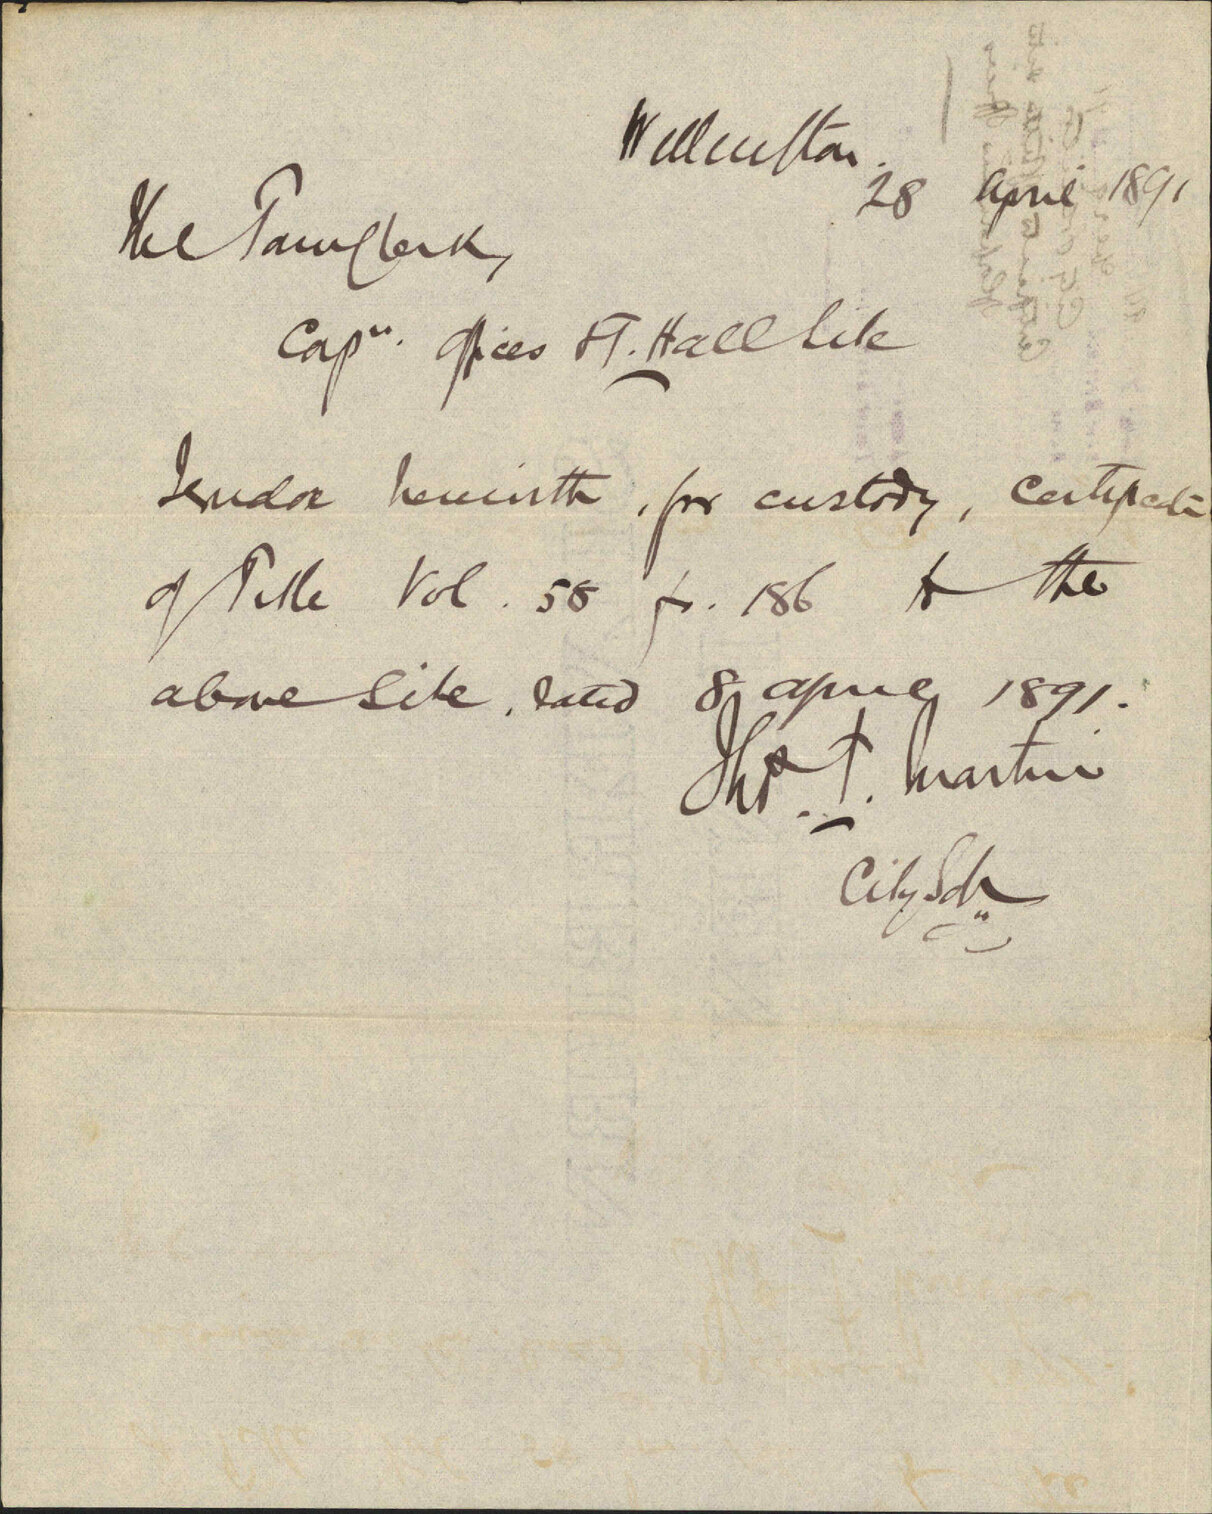 Wellington.
28 April 1891
The Town Clerk,
Corpn. Offices & T. Hall Site
I enclose herewith, for custody, Certificate
of Title Vol. 58 fo. 186 to the
above Site, dated 8 April 1891.
Thos. F. Martin
City Solr